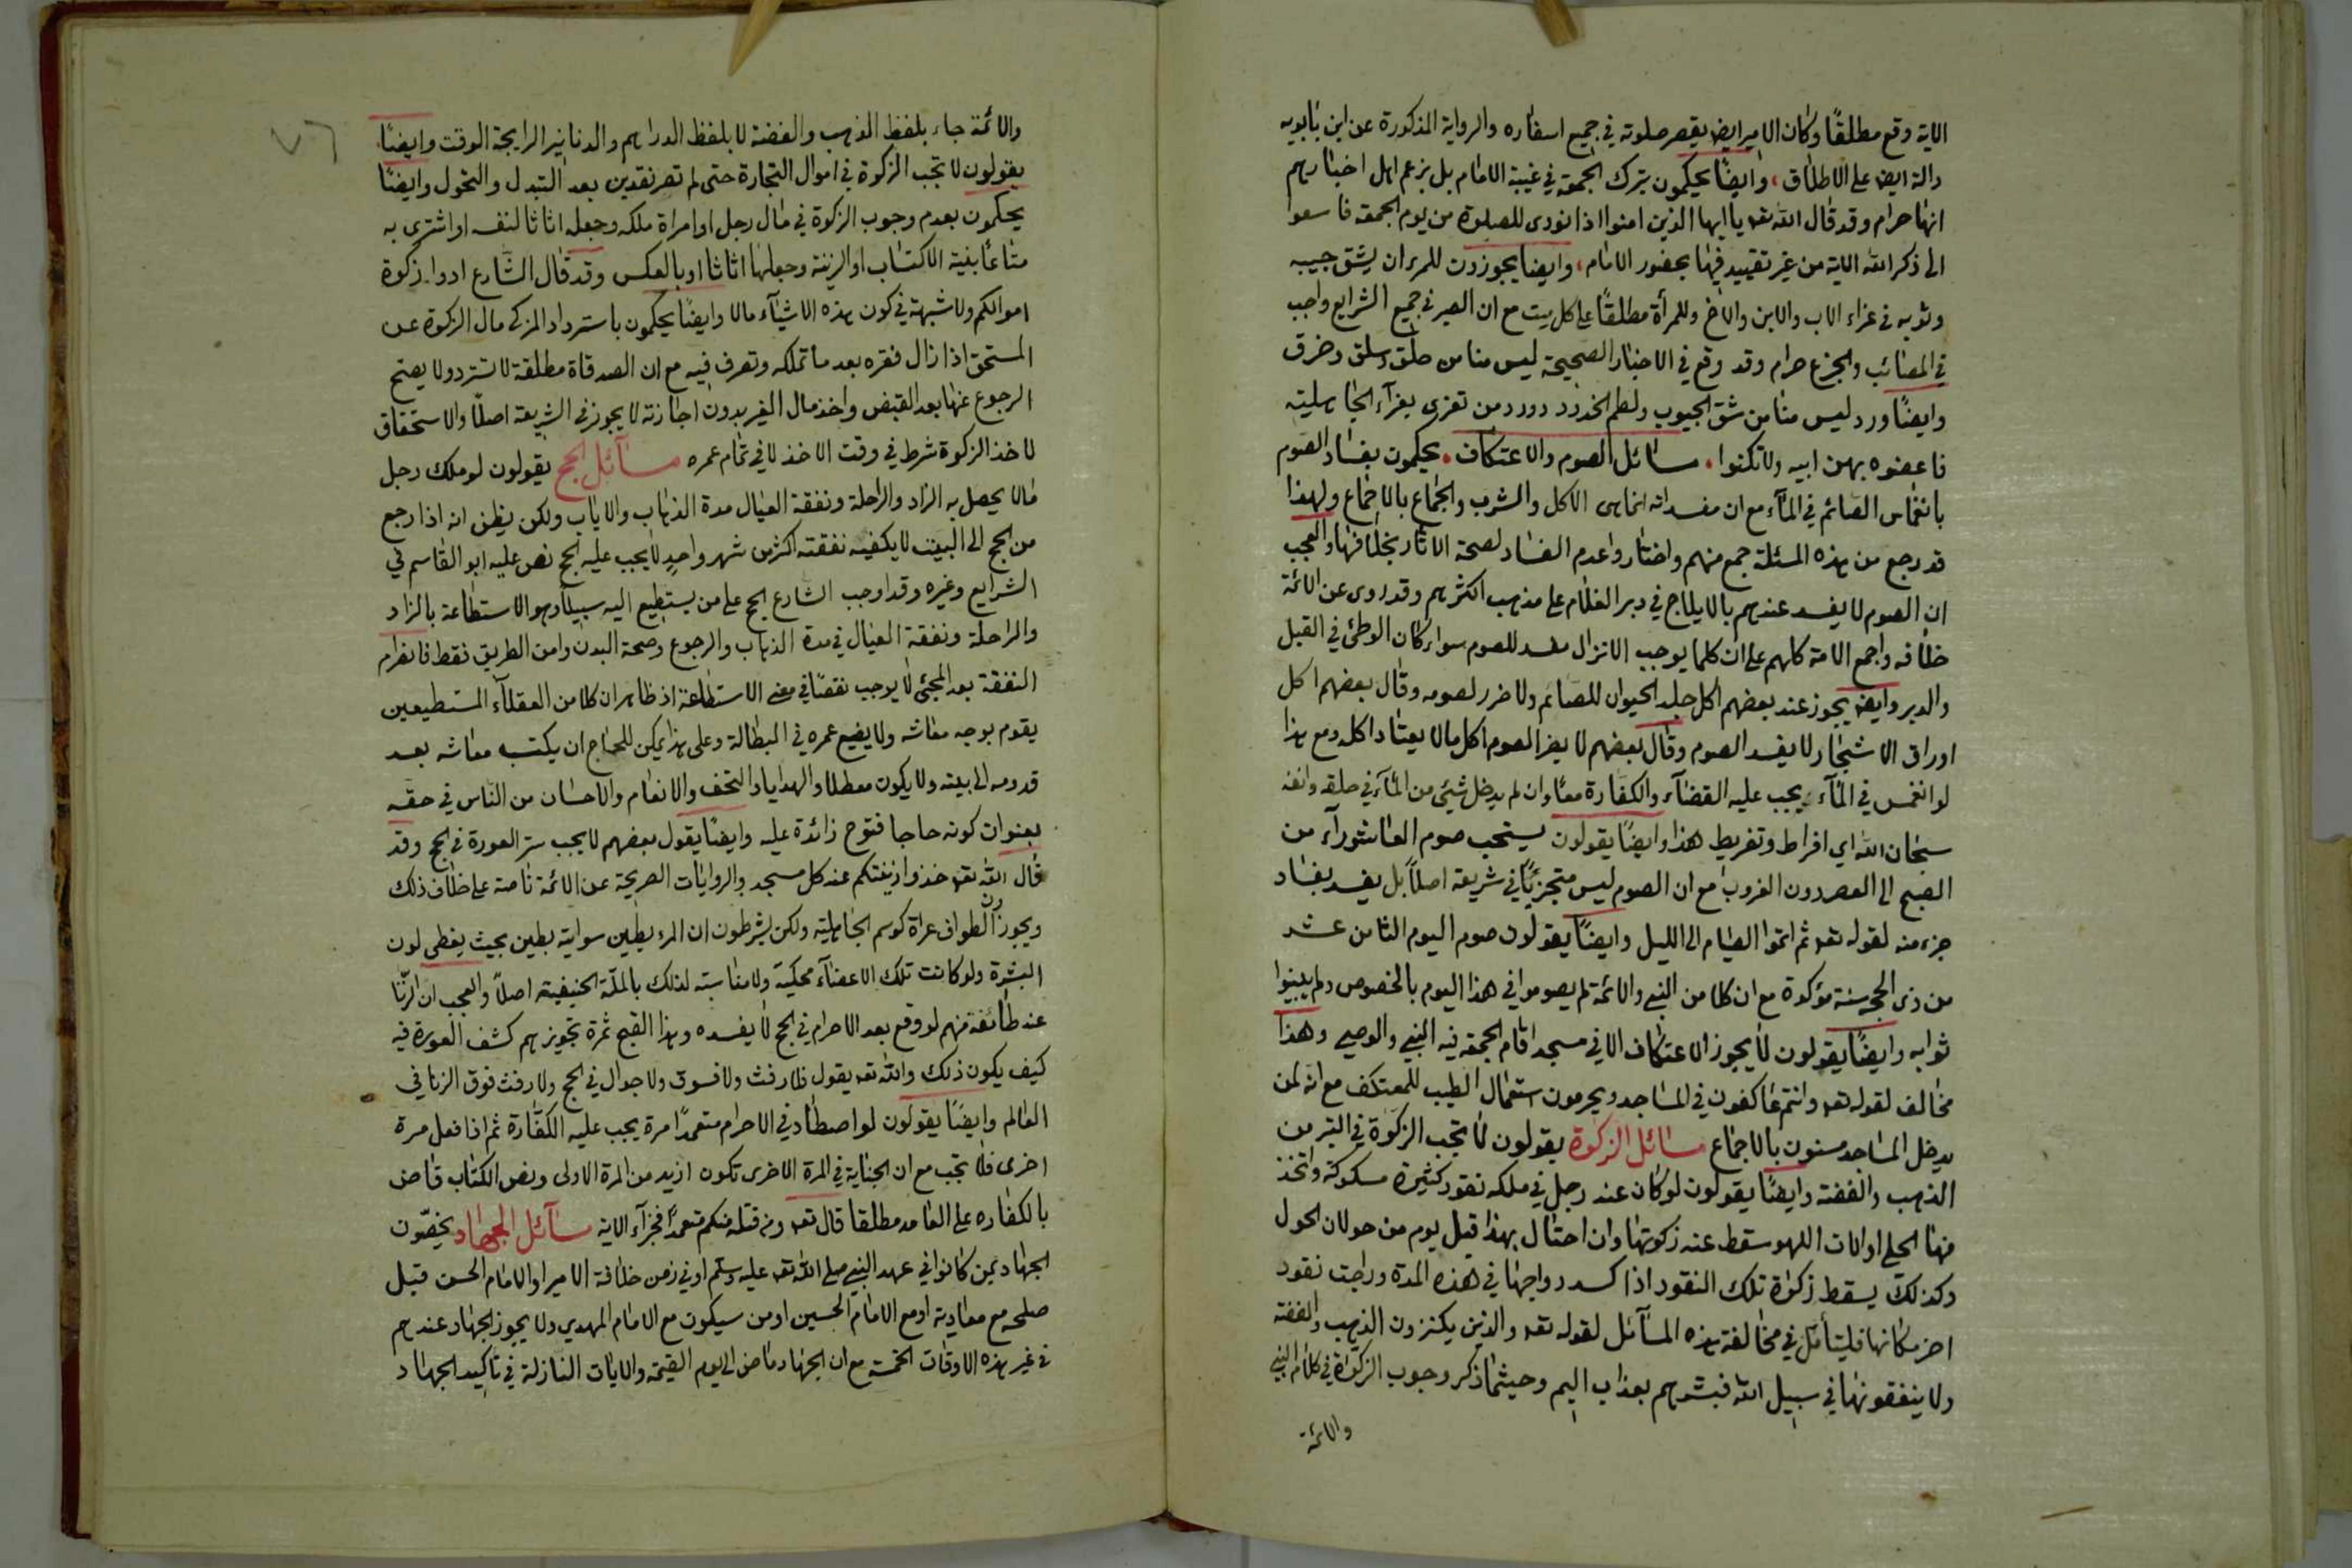 الاية وقع مطلقًا وكان الامير ايض يقصر صلوته في جميع اسفاره والرواية المذكورة عن ابن بابويه
دالة ايض على الاطلاق، وايضًا يحكمون بترك الجمعة في غيبة الامام بل يزعم اهل اخبارهم
انها حرام وقد قال الله تعه يا ايها الذين امنوا اذا نودى للصلوة من يوم الجمعة فاسعوا
الى ذكر الله الاية من غير تقييد فيها بحضور الامام، وايضا يجوزون للمرء ان يشق جيبه
وثوبه في عزاء الاب والابن والاخ وللمرأة مطلقًا على كل ميت مع ان الصبر في جميع الشرايع واجب
في المصائب والجزع حرام وقد وقع في الاخبار الصحيحة ليس منا من حلق وسلق وخرق
وايضًا ورد ليس منا من شق الجيوب ولطم الخدود وورد من تعزى بعزآء الجاهلية
فاعضوه بهن ابيه ولا تكنوا. مسائل الصوم والاعتكاف. يحكمون بفساد الصوم
بانغماس الصائم في المآء مع ان مفسداته انما هى الاكل والشرب والجماع بالاجماع ولهذا
قد رجع من هذه المسئلة جمع منهم واختاروا عدم الفساد لصحة الاثار بخلافها والعجب
ان الصوم لا يفسد عندهم بالايلاج في دبر الغلام على مذهب اكثرهم وقد روى عن الائمة
خلافه واجمع الامة كلهم على ان كلما يوجب الانزال مفسد للصوم سواء كان الوطئ في القبل
والدبر وايض يجوز عند بعضهم اكل جلد الحيوان للصائم ولا ضرر لصومه وقال بعضهم اكل
اوراق الاشجار لا يفسد الصوم وقال بعضهم لا يضر الصوم اكل ما لا يعتاد اكله ومع هذا
لو انغمس في المآء يجب عليه القضآء والكفارة معًا وان لم يدخل شئ من المآء في حلقه وانفه
سبحان الله اي افراط وتفريط هذا وايضًا يقولون يستحب صوم العاشورآء من
الصبح الى العصر دون الغروب مع ان الصوم ليس متجزيًا في شريعة اصلاً بل يفسد بفساد
جزء منه لقوله تعه ثم اتموا الصيام الى الليل وايضًا يقولون صوم اليوم الثامن عشر
من ذى الحجه سنة مؤكدة مع ان كلا من النبى والائمة لم يصوموا في هذا اليوم بالخصوص ولم يبينوا
ثوابه وايضًا يقولون لا يجوز الاعتكاف الا في مسجد اقام الجمعه فيه النبى والوصى وهذا
مخالف لقوله تعه وانتم عاكفون في المساجد ويحرمون استعمال الطيب للمعتكف مع انه لمن
يدخل المساجد مسنون بالاجماع مسائل الزكوة يقولون لا تجب الزكوة في التبر من
الذهب والفضة وايضًا يقولون لو كان عند رجل في ملكه نقود كثيرة مسكوكة واتخذ
منها الحلى او الات اللهو سقط عنه زكوتها وان احتال بهذا قبل يوم من حولان الحول
وكذلك يسقط زكوة تلك النقود اذا كسد رواجها في هذه المدة وراجت نقود
اخر مكانها فليتأمل في مخالفة هذه المسآئل لقوله تعه والذين يكنزون الذهب والفضة
ولا ينفقونها في سبيل الله فبشرهم بعذاب اليم وحيثما ذكر وجوب الزكوة في كلام النبى
والائمة
٧٦
والائمة جاء بلفظ الذهب والفضة لا بلفظ الدراهم والدنانير الرايجة الوقت وايضًا
يقولون لا تجب الزكوة في اموال التجارة حتى لم تصر نقدين بعد التبدل والتحول وايضًا
يحكمون بعدم وجوب الزكوة في مال رجل او امراة ملكه وجعله اثاثا لنفسه او اشترى به
متاعًا بنية الاكتساب او الزينة وجعلها اثاثا او بالعكس وقد قال الشارع ادوا زكوة
اموالكم ولا شبهة في كون هذه الاشيآء مالا وايضًا يحكمون باسترداد المزكى مال الزكوة عن
المستحق اذا زال فقره بعد ما تملكه وتصرف فيه مع ان الصدقاة مطلقة لا تسترد ولا يصح
الرجوع عنها بعد القبض واخذ مال الغير بدون اجازته لا يجوز في الشريعة اصلًا والاستحقاق
لاخذ الزكوة شرط في وقت الاخذ لا في تمام عمره مسآئل الحج يقولون لو ملك رجل
مالا يحصل به الزاد والراحلة ونفقة العيال مدة الذهاب والاياب ولكن يظن انه اذا رجع
من الحج الى البيت لا يكفيه نفقته اكثر من شهر واحدٍ لا يجب عليه الحج نص عليه ابو القاسم في
الشرايع وغيره وقد اوجب الشارع الحج على من يستطيع اليه سبيلًا وهو الاستطاعة بالزاد
والراحلة ونفقة العيال في مدة الذهاب والرجوع وصحة البدن وامن الطريق فقط فانعرام
النفقة بعد المجئ لا يوجب نقصًا في معنى الاستطاعة اذ ظاهر ان كلا من العقلآء المستطيعين
يقوم بوجه معاشه ولا يضيع عمره في البطالة وعلى هذا يمكن للحاج ان يكتسب معاشه بعد
قدومه الى بيته ولا يكون معطلا والهدايا والتحف والانعام والاحسان من الناس في حقه
بعنوان كونه حاجا فتوح زائدة عليه وايضًا يقول بعضهم لا يجب ستر العورة في الحج وقد
قال الله تعه خذوا زينتكم عند كل مسجد والروايات الصريحة عن الائمة ناصة على خلاف ذلك
ويجوزون الطواف عراة كرسم الجاهلية ولكن يشرطون ان المرء يطين سوايته بطين بحيث يغطى لون
البشرة ولو كانت تلك الاعضآء محكية ولا مناسبة لذلك بالملّة الحنيفية اصلاً والعجب ان الزنا
عند طائفة منهم لو وقع بعد الاحرام في الحج لا يفسده وهذا القبح ثمرة تجويزهم كشف العورة فيه
كيف يكون ذلك والله تعه يقول فلا رفث ولا فسوق ولا جدال في الحج ولا رفث فوق الزنا في
العالم وايضًا يقولون لو اصطاد في الاحرام متعمدًا مرة يجب عليه الكفّارة ثم اذا فعل مرة
اخرى فلا تجب مع ان الجناية في المرة الاخرى تكون ازيد من المرة الاولى ونص الكتاب قاض
بالكفاره على العامد مطلقا قال تعه ومن قتله منكم متعمدًا فجزآء الاية مسآئل الجهاد يخصّون
الجهاد بمن كانوا في عهد النبي صلى الله تعه عليه وسلم او في زمن خلافة الامير او الامام الحسن قبل
صلحه مع معاوية او مع الامام الحسين او من سيكون مع الامام المهدي ولا يجوز الجهاد عندهم
في غير هذه الاوقات الخمسة مع ان الجهاد ماض الى يوم القيمة والايات النازلة في تاكيد الجهاد